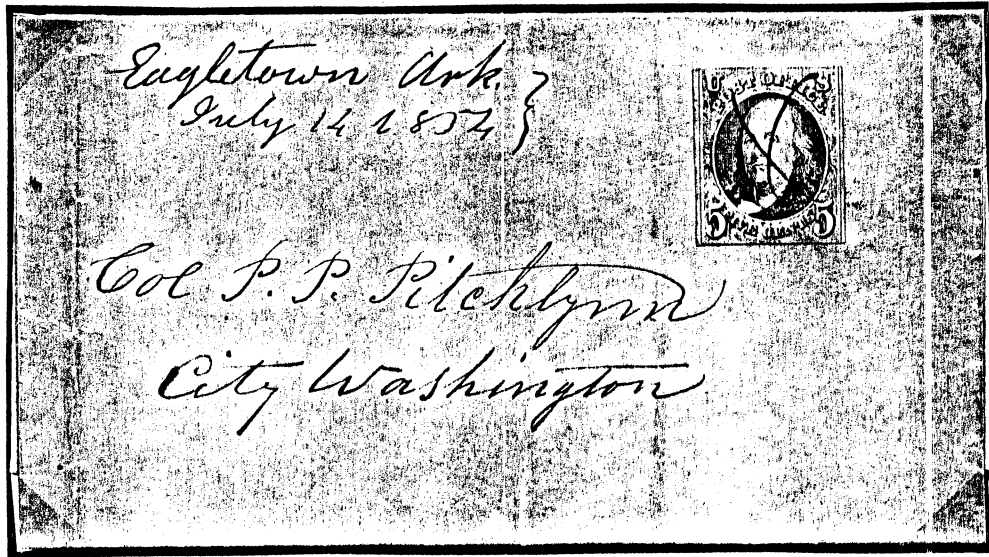 Eagletown Ark.
July 14 1854
POST OFFICE
5 5
Col P. P. Pitchlynn
City Washington